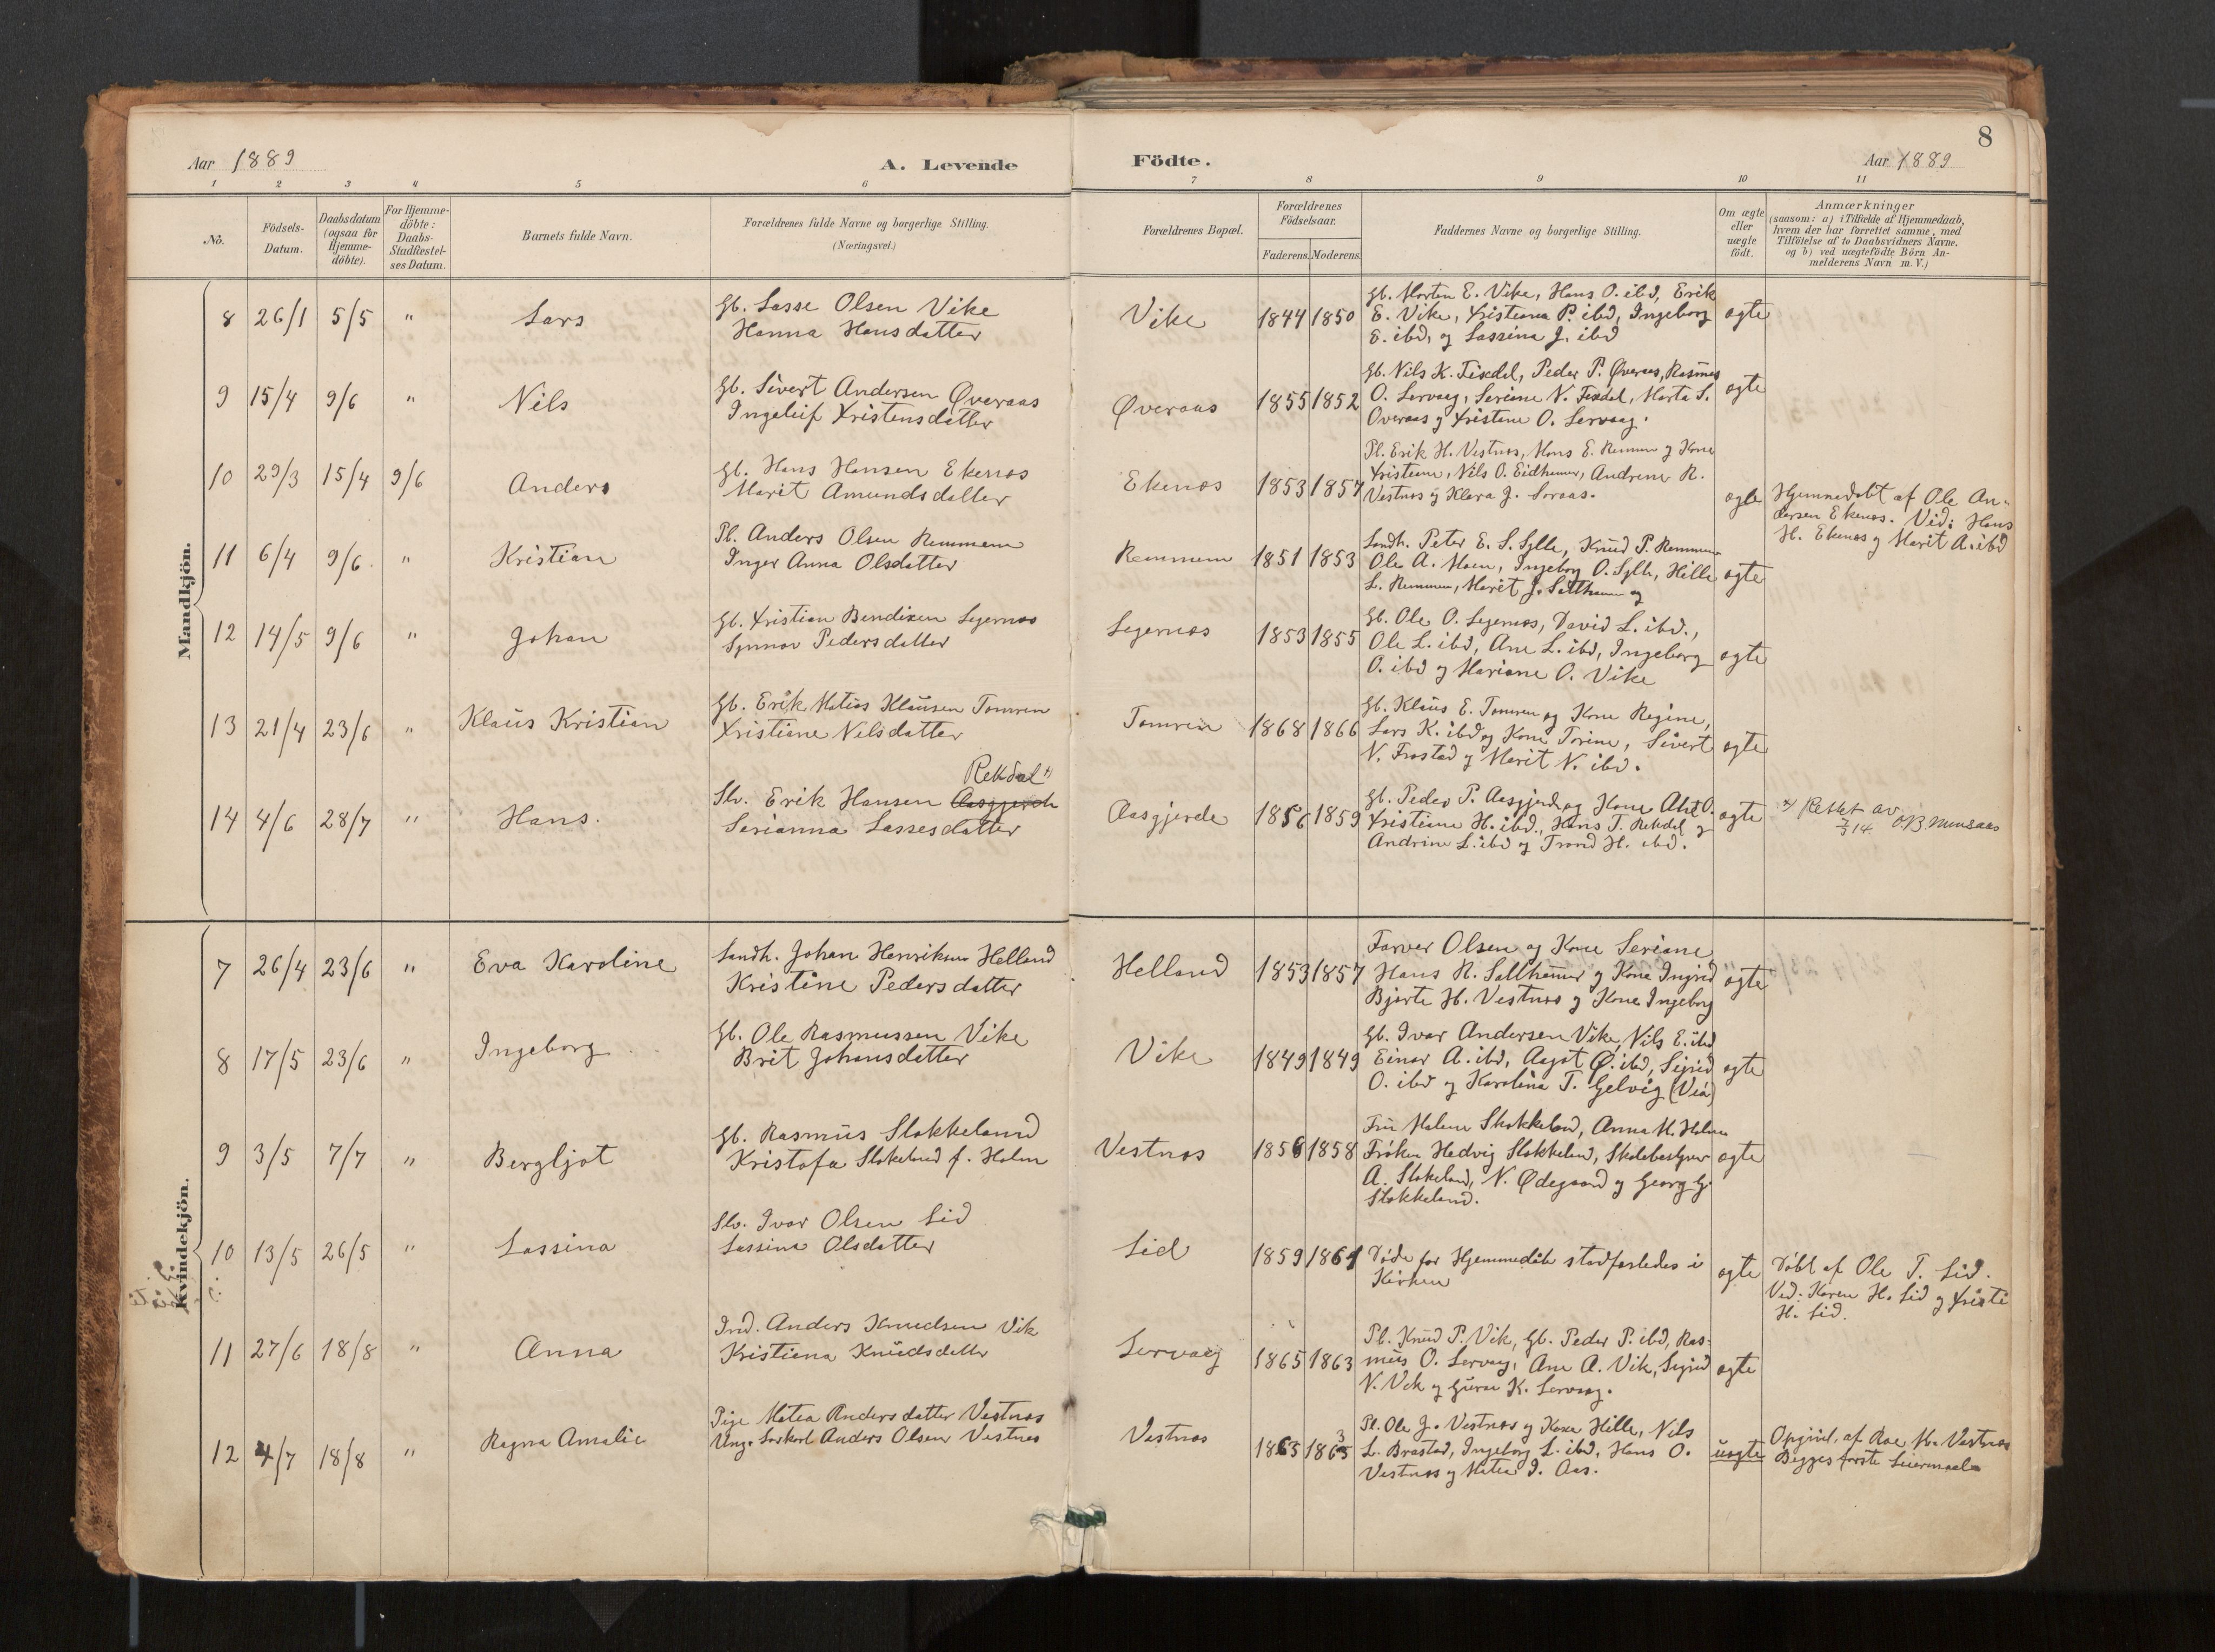 8
Aar 1889
A. Levende
Födte.
Aar 1889
1 2 3 4 5 6 7 8 9 10 11
No.
Födsels-
Datum.
Daabsdatum
(ogsaa for
Hjemme-
döbte).
For Hjemme-
döbte:
Daabs-
Stadfæstel-
ses Datum.
Barnets fulde Navn.
Forældrenes fulde Navne og borgerlige Stilling.
(Næringsvei.)
Forældrenes Bopæl.
Forældrenes
Födselsaar.
Faderens. Moderens.
Faddernes Navne og borgerlige Stilling.
Om ægte
eller
uægte
födt.
Anmærkninger
(saasom: a) i Tilfælde af Hjemmedaab,
hvem der har forrettet samme, med
Tilföielse af to Daabsvidners Navne.
og b) ved uægtefödte Börn An-
melderens Navn m. V.)
Mandkjön.
8 26/1 5/5 " Lars
Gb. Lasse Olsen Vike
Hanna Hansdatter
Vike 1844 1850
Gb. Morten E. Vike, Hans O. ibd, Erik
E. Vike, Kristiana P. ibd, Ingeborg
E. ibd, og Lassina J. ibd
ægte
9 15/4 9/6 " Nils
Gb. Sivert Andersen Øveraas
Ingeleif Kristensdatter
Øveraas 1855 1852
Gb. Nils K. Fixdal, Peder P. Øveraas, Rasmus
O. Lervaag, Seriane N. Fixdal, Marta S.
Overaas og Kristine O. Lervaag.
ægte
10 29/3 15/4 9/6 Anders
Gb. Hans Hansen Ekenæs
Marit Amundsdatter
Ekenæs 1853 1857
Pl. Erik H. Vestnæs, Hans E. Remmen og Kone
Kristiane, Nils O. Eidhamer, Andrine R.
Vestnæs og Klara J. Soraas.
ægte
Hjemmedøbt af Ole An-
dersen Ekenæs. Vid: Hans
H. Ekenæs og Marit A. ibd
11 6/4 9/6 " Kristian
Pl. Anders Olsen Remmem
Inger Anna Olsdatter
Remmem 1851 1853
Landh. Peter E. S. Sylte, Knud P. Remmem
Ole A. Moen, Ingeborg O. Sylte, Hille
L. Remmem, Marit J. Salthamer og
ægte
12 14/5 9/6 " Johan
Gb. Kristian Bendixen Legernæs
Synnøv Pedersdatter
Legernæs 1853 1855
Gb. Ole O. Legernæs, David L. ibd.,
Ole L. ibd, Ane L. ibd, Ingeborg
O. ibd og Mariane O. Vike
ægte
13 21/4 23/6 " Klaus Kristian
Gb. Erik Matias Klausen Tomren
Kristiane Nilsdatter
Tomren 1868 1866
Gb. Klaus E. Tomren og Kone Regine,
Lars K. ibd og Kone Torine, Sivert
N. Frostad og Marit N. ibd.
ægte
14 4/6 28/7 " Hans.
Rekdal x)
Slv. Erik Hansen Aasgjerde
Serianna Lassesdatter
Aasgjerde 1856 1859
Gb. Peder P. Aasgjerde og Kone O.
Kristiane H. ibd., Hans T. Rekdal og
Andrine L. ibd og Trond H. ibd.
ægte
x) Rettet av
7/3 14
Kvindekjön.
7 26/4 23/6 " Eva Karoline
Landh. Johan Henriksen Helland
Kristine Pedersdatter
Helland 1853 1857
Farver Olsen og Kone Seriane
Hans R. Salthamer og Kone Ingrid
Bjørte H. Vestnæs og Kone Ingeborg
ægte
8 17/5 23/6 " Ingeborg
Gb. Ole Rasmussen Vike
Brit Johansdatter
Vike 1849 1849
Gb. Ivar Andersen Vike, Nils E. ibd
Einar A. ibd, Aagot Ø. ibd, Sigrid
O. ibd og Karolina T. Gelvig (Veø)
ægte
9 3/5 7/7 " Bergljot
Gb. Rasmus Stokkeland
Kristofa Stokeland f. Holm
Vestnæs 1856 1858
Fru Malene Stokkeland, Anna M. Holm
Frøken Hedvig Stokkeland, Skolebestyrer
A. Stokeland, N. Ødegaard og Georg G.
Stokkeland.
ægte
10 13/5 26/5 " Lassina
Slv. Ivar Olsen Lid
Lassina Olsdatter
Lid 1859 1861
Døde før Hjemmedåb stadfæstedes i
Kirken
ægte
Døbt af Ole T. Lid.
Vid: Karen H. Lid og Kristi
H. Lid.
11 27/6 18/8 " Anna
Ind. Anders Knudsen Vik
Kristiana Knudsdatter
Lervaag 1865 1863
Pl. Knud P. Vik, Gb. Peder P. ibd, Ras-
mus O. Lervaag, Ane A. Vik, Sigrid
N. Vik og Guru K. Lervaag.
ægte
12 4/7 18/8 " Ragna Amalie
Pige Matea Andersdatter Vestnæs
Ung. Anders Olsen Vestnes
Vestnæs 1863 1865
3
Pl. Ole J. Vestnæs og Kone Hille, Nils
L. Brastad, Ingeborg L. ibd, Hans O.
Vestnæs og Matea I. Aas.
uægte
Opgivet af Vestnæs
Begges første Leiermaal